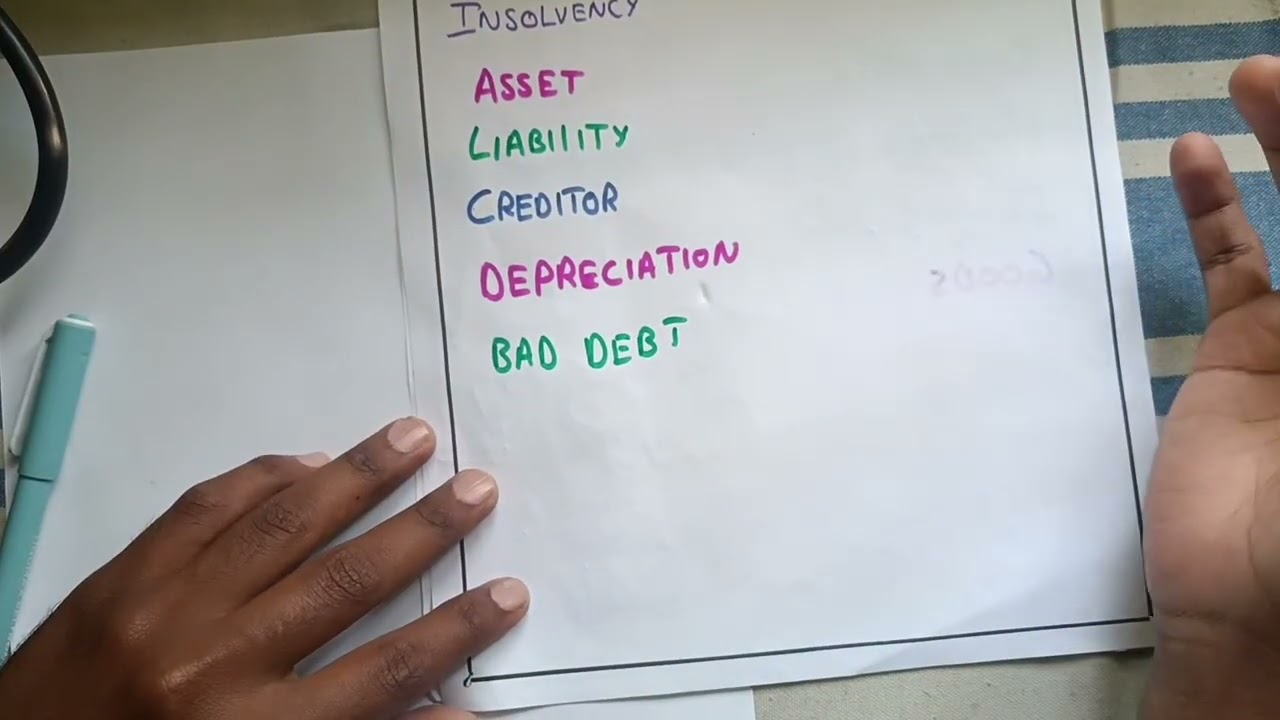 INSOLVENCY
ASSET
LIABILITY
CREDITOR
DEPRECIATION
BAD DEBT